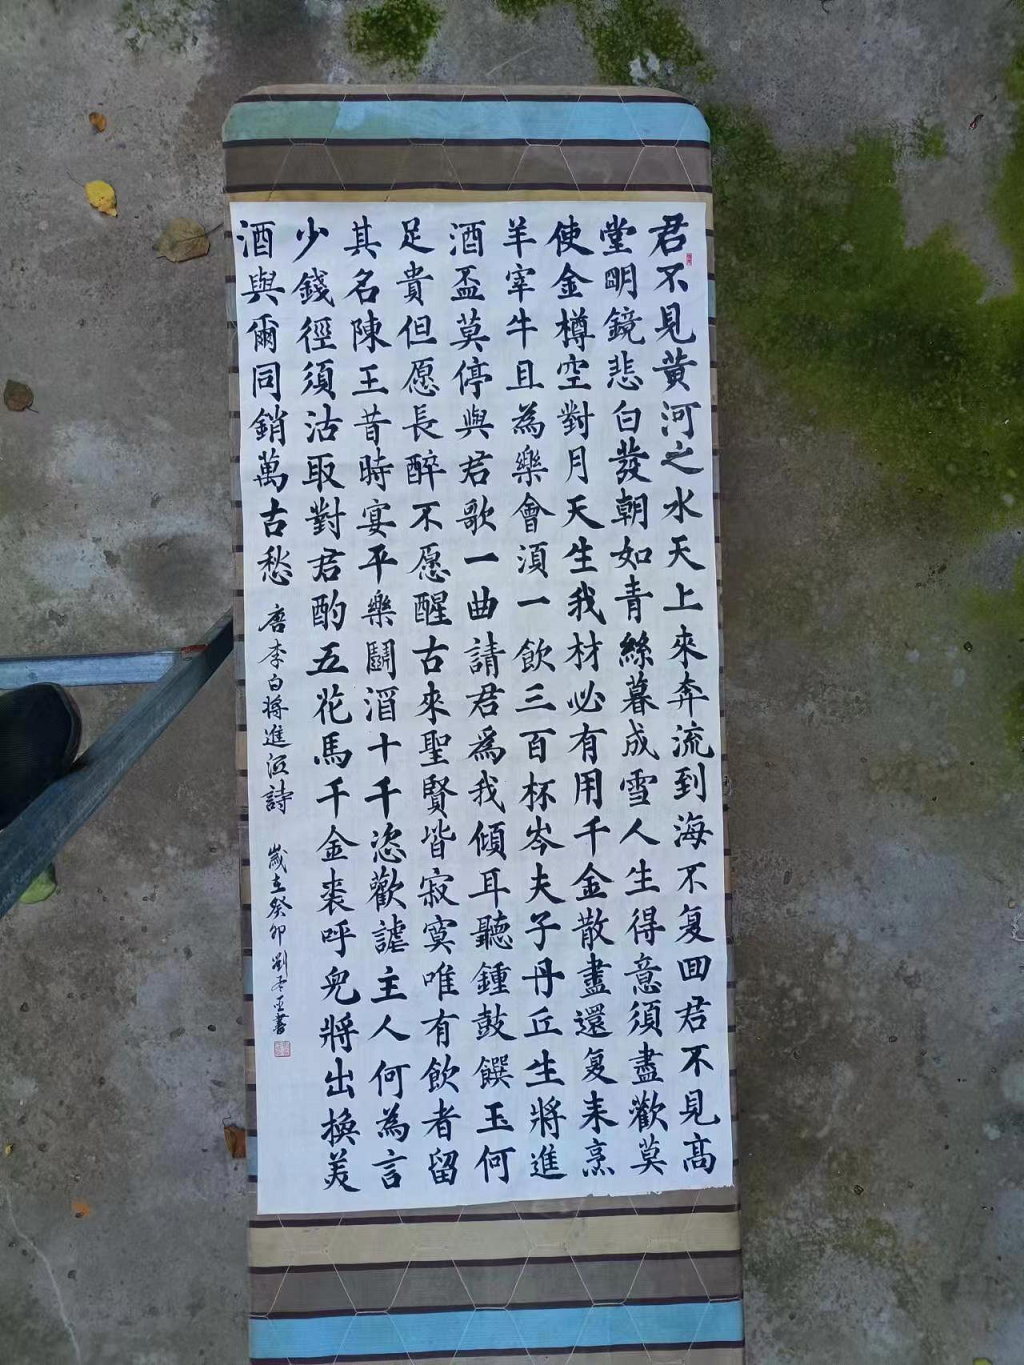 君不見黃河之水天上來奔流到海不复回君不見高
堂明鏡悲白發朝如青絲暮成雪人生得意須盡歡莫
使金樽空對月天生我材必有用千金散盡還复来烹
羊宰牛且為樂會須一飲三百杯岑夫子丹丘生將進
酒盃莫停與君歌一曲請君為我傾耳聽鍾鼓饌玉何
足貴但愿長醉不愿醒古來聖賢皆寂寞唯有飲者留
其名陳王昔時宴平樂鬭酒十千恣歡謔主人何為言
少錢徑須沽取對君酌五花馬千金裘呼兒將出換美
酒與爾同銷萬古愁 唐李白將進酒詩 歲在癸卯劉書